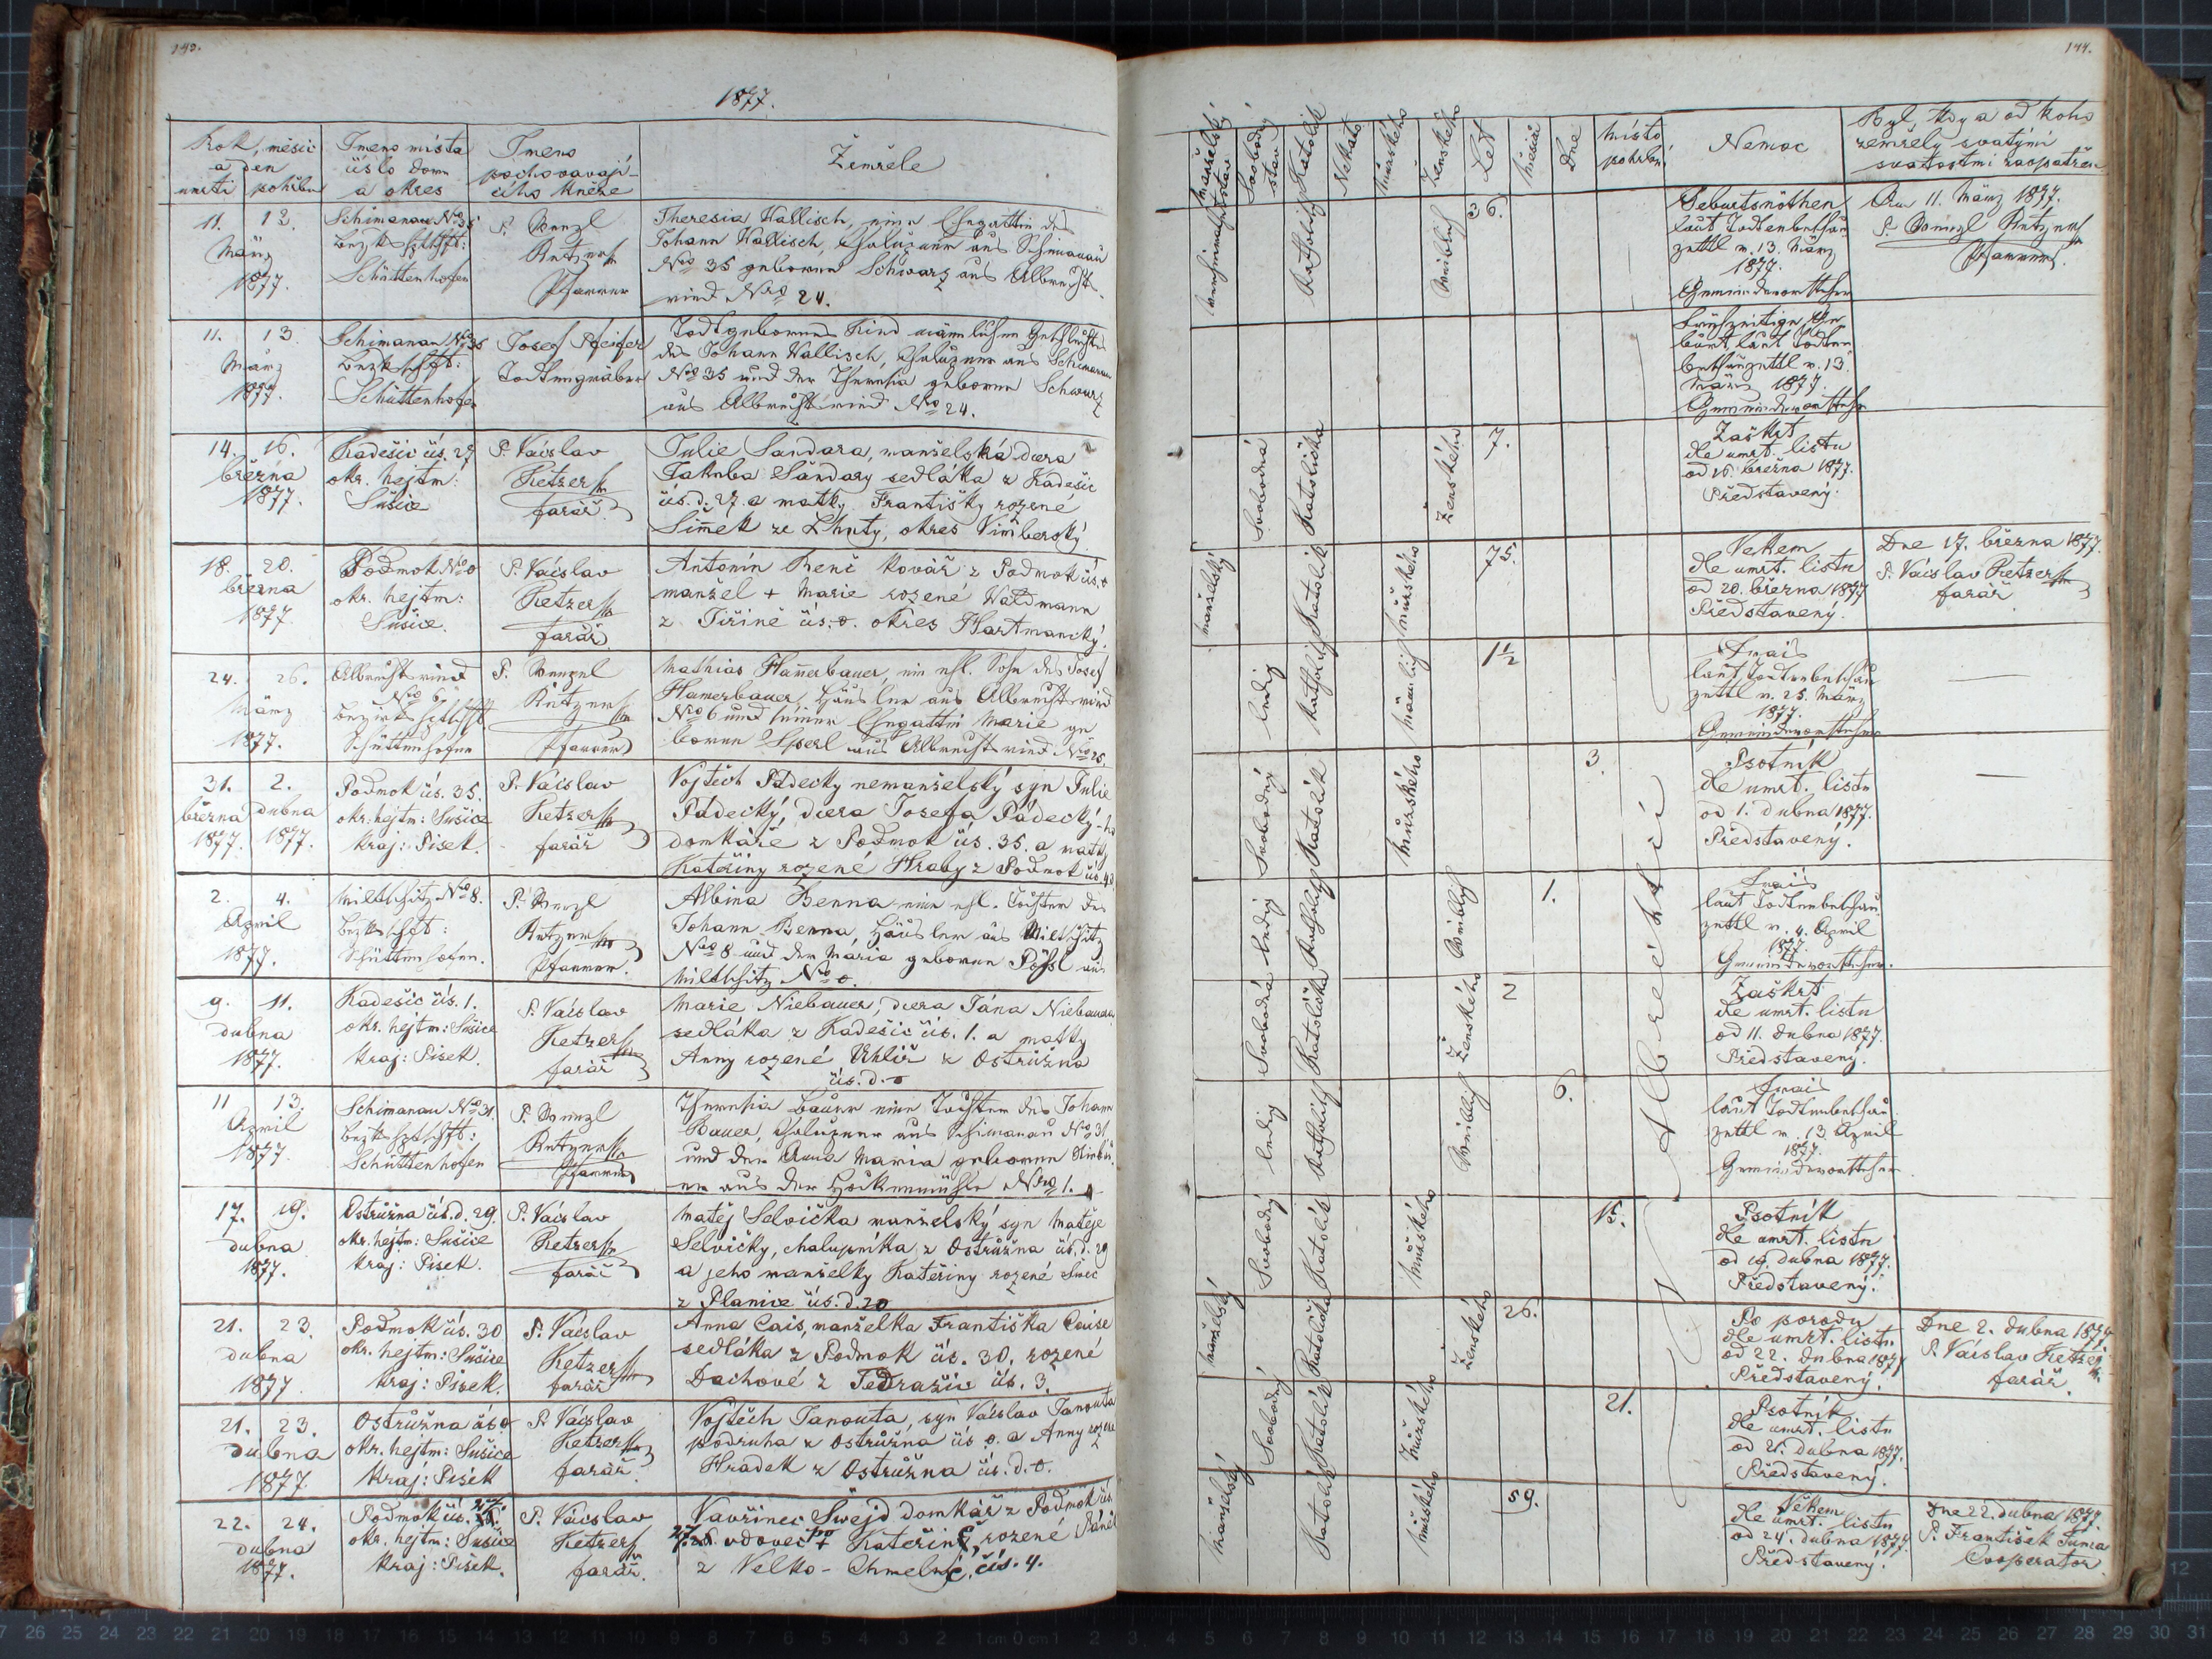 143.
1877.
Rok, měsíc
a den
umrtí pohřbu
Jmeno místa
čislo domu
a okres
Jmeno
pochovavají-
cího kněze
Zemřele
11. 13.
März
1877.
Schimanau Nro 35
Bezkshptschft:
Schüttenhofen
P. Wenzl
Retzer
Pfarrer
Theresia Wallisch, eine Ehegattin des
Johann Wallisch, Chalupner aus Schimanau
Nro 35 geborene Schwarz aus Albrechts-
ried Nro 24.
11. 13.
März
1877.
Schimanau Nro 35
Bezkshptschft:
Schüttenhofen
Josef Pfeifer
Todtengräber
Todtgeborenes Kind männlichen Geschlechts
des Johann Wallisch, Chalupner aus Schimanau
Nro 35 und der Theresia geborene Schwarz
aus Albrechtsried Nro 24.
14. 16.
března
1877.
Kadešic čís. 27
okr. hejtm:
Sušice
P. Václav
Retzer
farář
Julie Sandara, manželská dcera
Jakuba Sandary sedláka z Kadešic
čís. d. 27. a matky Františky rozené
Šimek ze Lhoty, okres Vimberský
18. 20.
března
1877.
Podmok Nro 0
okr. hejtm:
Sušice.
P. Václav
Retzer
farář
Antonín Renč kovář z Podmok čís. 0
manžel + Marie rozené Waldmann
z Jiřině čís. 0. okres Hartmanický.
24. 26.
März
1877.
Albrechtsried
Nro 6
Bezirkshptschft
Schüttenhofen
P. Wenzel
Retzer
Pfarrer
Mathias Hamerbauer, ein ehl. Sohn des Josef
Hamerbauer, Häusler aus Albrechtsried
Nro 6 und seiner Ehegattin Marie ge
borene Sperl aus Albrechtsried Nro 25.
31. 2.
března dubna
1877. 1877.
Podmok čís. 35.
okr: hejtm: Sušice
kraj: Pisek.
P. Václav
Retzer
farář
Vojtěch Pádecky nemanželský syn Julie
Pádecký, dcera Josefa Pádecký-ho
domkáře z Podmok čís. 35. a matky
Kateřiny rozené Hraby z Podmok čís. 43
2. 4.
April
1877.
Miltschitz Nro 8.
Bezkschft:
Schüttenhofen.
P. Wenzl
Retzer
Pfarrer.
Albina Benna eine ehl. Tochter des
Johann Benna, Häusler aus Miltschitz
Nro 8 und der Maria geborene Pössl aus
Miltschitz Nro 0.
9. 11.
dubna
1877.
Kadešic čís. 1.
okr. hejtm: Sušice
kraj: Pisek.
P. Václav
Retzer
farář
Marie Niebauer, dcera Jána Niebauera
sedláka z Kadešic čís. 1. a matky
Anny rozené Uhlíř z Ostružna
čís. d. 0
11 13.
April
1877.
Schimanau Nro 31.
Bezkshptschft:
Schüttenhofen
P. Wenzl
Retzer
Pfarrer
Theresia Bauer eine Tochter des Johann
Bauer, Chalupner aus Schimanau Nro 31
und der Anna Maria geborene
er aus der Nro 1.
17. 19.
dubna
1877.
Ostružna čís. d. 29.
okr. hejtm: Sušice
kraj: Pisek.
P. Václav
Retzer
farář
Matěj Selvička manželský syn Matěje
Selvičky, chalupníka z Ostružna čís. d. 29
a jeho manželky Kateřiny rozené Švec
z Planice čís. d. 20
21. 23.
dubna
1877.
Podmok čís. 30
okr. hejtm: Sušice
kraj: Pisek.
P. Václav
Retzer
farář
Anna Cais, manželka Františka Caise
sedláka z Podmok čís. 30. rozené
Dachové z Tedražic čís. 3.
21. 23.
dubna
1877.
Ostružna čís. 0
okr. hejtm: Sušice
kraj: Pisek
P. Václav
Retzer
farář.
Vojtěch Janouta, syn Václav Janouta
podruha z Ostružna čís 0. a Anny rozené
Hradek z Ostružna čís. d. 0.
22. 24.
dubna
1877.
Podmok čís. 27.
okr. hejtm: Sušice
kraj: Pisek.
P. Václav
Retzer
farář.
Vavřinec Švejd domkář z Podmok čís.
27. vdovec po + Kateřině, rozené
z Velko-Chmelné, čís. 4.
144.
Manželský
stav
Svobodný
stav
Katolík
Nekato
Mužského
Ženského
Let
Měsíců
Dne
Místo
pohrbu
Nemoc
Byl, kdy a od koho
zemřelý svatými
svatostmi zaopatřen
Katholisch
Weiblich
36.
Geburtsnöthen
laut Todtenbeschau
zettl v. 13. März
1877.
Gemeindevorsteher
Am 11. März 1877.
P. Wenzl Retzer
Pfarrer.
Frühzeitige Ge
burt, laut Todten
beschauzettl v. 13.
März 1877.
Gemeindevorsteher
Svobodná
Katolička
Ženského
7.
Zaškrt
dle umrt. listu
od 16. března 1877.
Představený.
manželský
Katolík
mužského
75.
Vekem
dle umrt. listu
od 20. března 1877
Představený.
Dne 17. března 1877.
P. Václav Retzer
farář
ledig
Katholisch
Mänlich
1 1/2
Frais
laut Todtenbeschau
zettl v. 25. März
1877.
Gemeindevorsteher
Svobodný
Katolík
Mužského
3.
Psotník
dle umrt. listu
od 1. dubna 1877.
Představený.
ledig
Katholisch
Weiblich
1.
Frais
laut Todtenbeschau
zettl v. 4. April
1877.
Gemeindevorsteher.
Svobodná
Katolička
Ženského
2
Zaškrt
dle umrt. listu
od 11. dubna 1877.
Představený.
ledig
Katholisch
Weiblich
6.
Frais
laut Todtenbeschau
zettl v. 13. April
1877.
Gemeindevorsteher
Svobodný
Katolík
Mužského
15.
Psotník
dle umrt. listu
od 19. dubna 1877.
Představený.
manželský
Katolička
Ženského
26.
Po porodu
dle umrt. listu
od 22. dubna 1877
Představený.
Dne 2. dubna 1877
P. Václav Retzer
farář.
Svobodný
Katolík
Mužského
21.
Psotník
dle umrt. listu
od 21. dubna 1877.
Představený.
Manželský
Katolík
Mužského
59.
Věkem
dle umrt. listu
od 24. dubna 1877.
Představený.
Dne 22. dubna 1877.
P. František
Cooperator